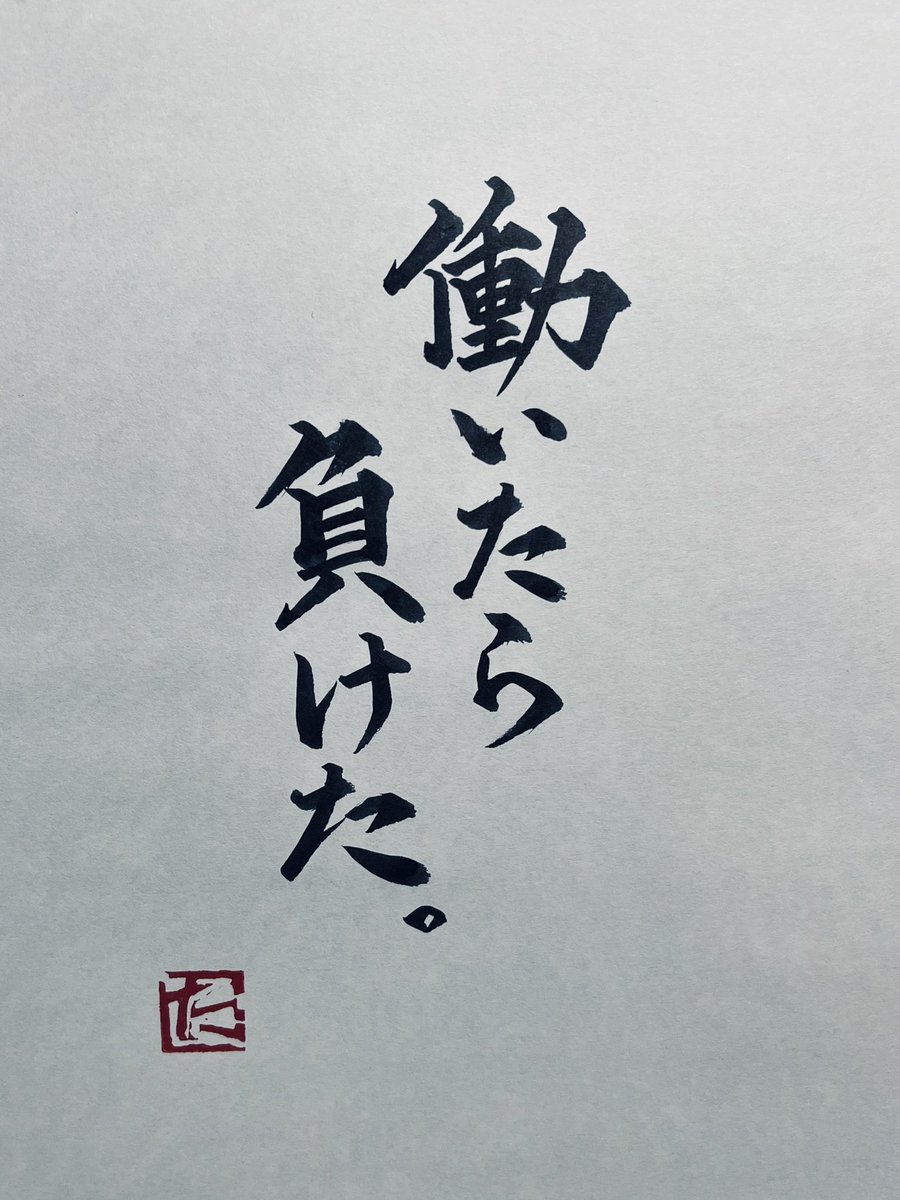 働いたら
負けた。